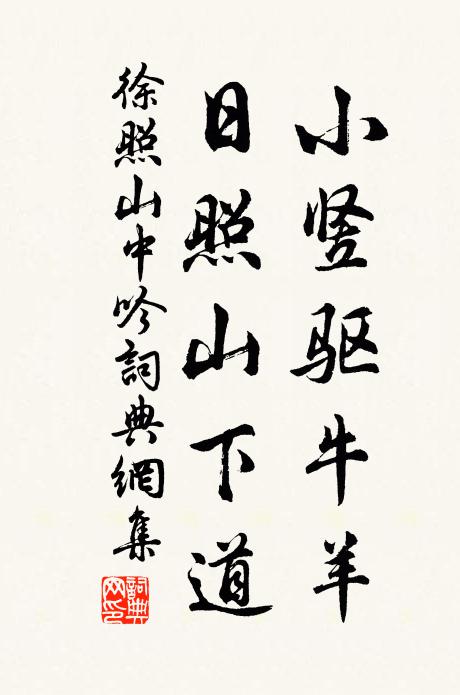 小竖驱牛羊
日照山下道
徐照山中吟詞典網集
詞典
网印